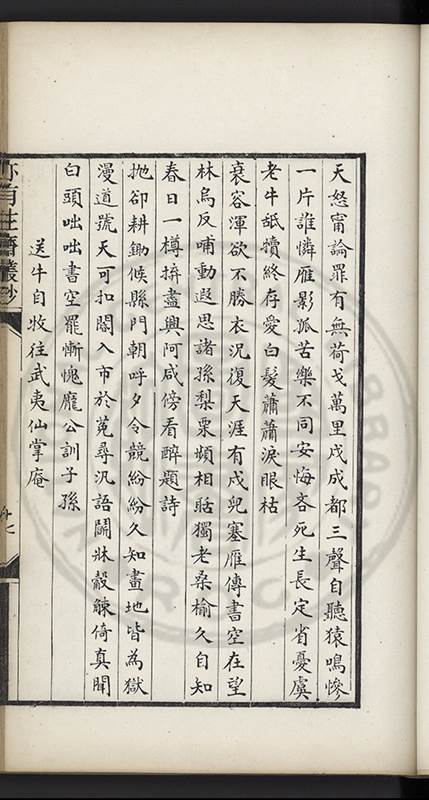 天怒甯論罪有無荷戈萬里戍成都三聲自聽猿鳴慘
一片誰憐雁影孤苦樂不同安悔吝死生長定省憂虞
老牛舐犢終存愛白髮蕭蕭淚眼枯
衰容渾欲不勝衣況復天涯有戍兒塞雁傳書空在望
林烏反哺動遐思諸孫梨栗頻相貼獨老桑榆久自知
春日一樽拚盡興阿咸傍看醉題詩
拋卻耕鋤候縣門朝呼夕令競紛紛久知畫地皆為獄
漫道號天可扣閽入市於菟尋汎語鬭牀觳觫倚真聞
白頭咄咄書空罷慚愧龐公訓子孫
送牛自牧往武夷仙掌庵